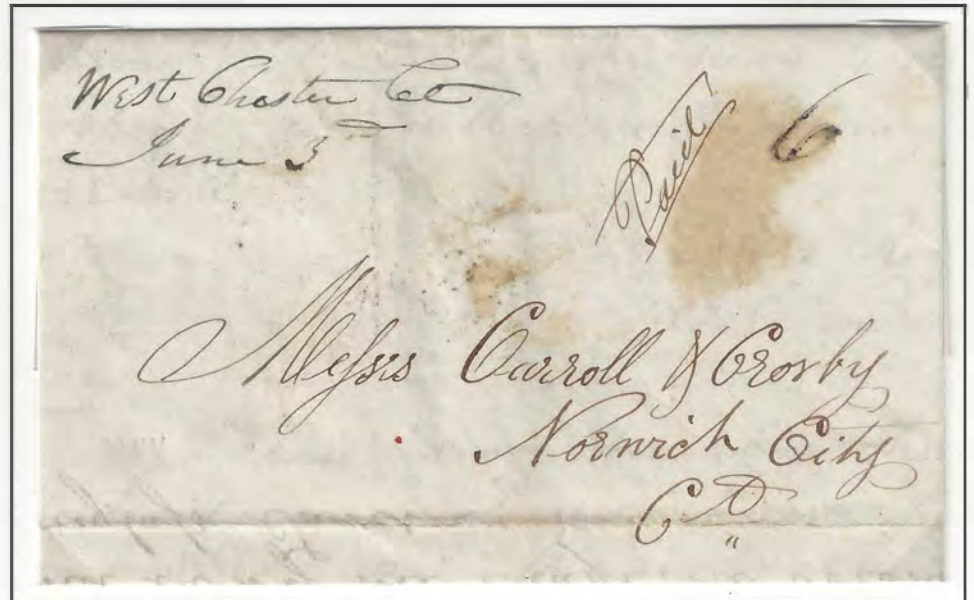 West Chester Ct
June 3rd
Paid
6
Messrs Carroll & Crosby
Norwich City
Ct